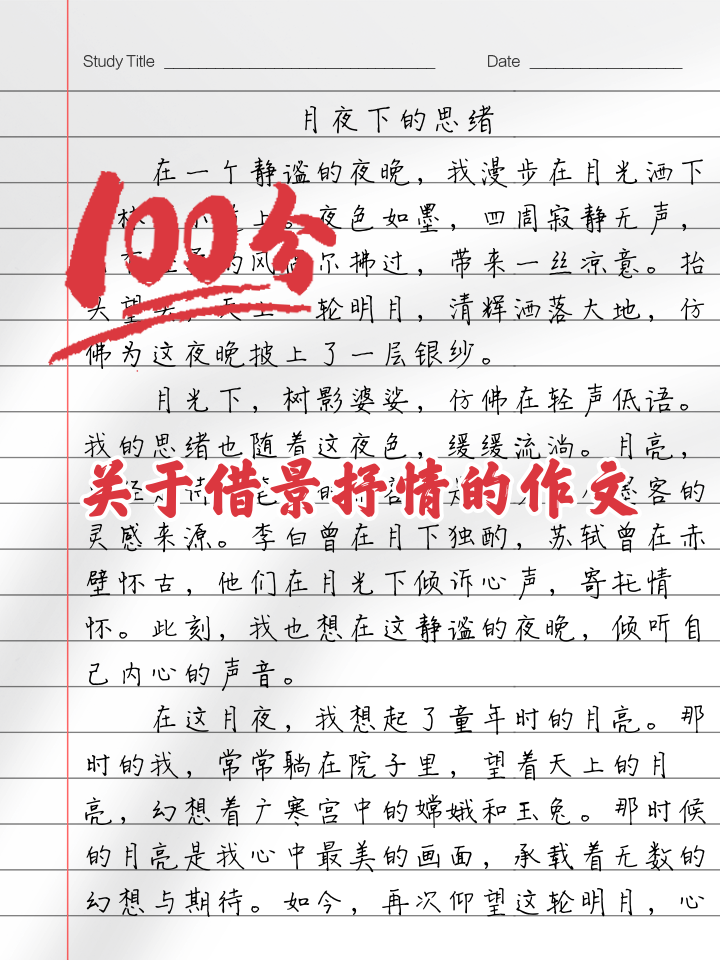 Study Title Date
月夜下的思绪
在一个静谧的夜晚，我漫步在月光洒下
上。夜色如墨，四周寂静无声，
100分
的风偶尔拂过，带来一丝凉意。抬
头望去，天上一轮明月，清辉洒落大地，仿
佛为这夜晚披上了一层银纱。
月光下，树影婆娑，仿佛在轻声低语。
我的思绪也随着这夜色，缓缓流淌。月亮，
关于借景抒情的作文
墨客的
灵感来源。李白曾在月下独酌，苏轼曾在赤
壁怀古，他们在月光下倾诉心声，寄托情
怀。此刻，我也想在这静谧的夜晚，倾听自
己内心的声音。
在这月夜，我想起了童年时的月亮。那
时的我，常常躺在院子里，望着天上的月
亮，幻想着广寒宫中的嫦娥和玉兔。那时候
的月亮是我心中最美的画面，承载着无数的
幻想与期待。如今，再次仰望这轮明月，心